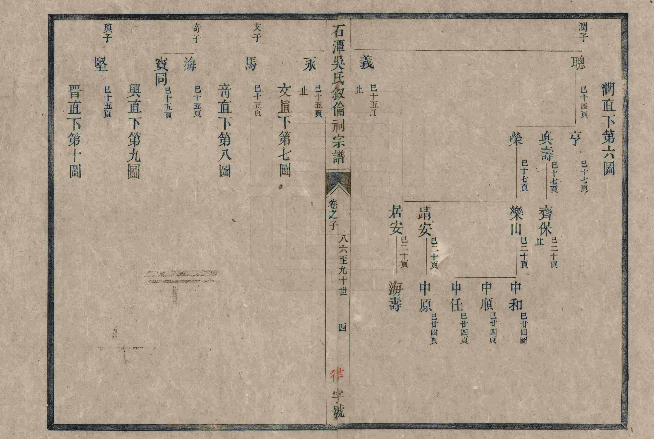 潤直下第六圖
潤子
聰 巳十四頁
亨 巳十七頁
真壽 巳十七頁
榮 巳十七頁
齊保 巳二十頁 止
樂山 巳二十頁
靖安 巳二十頁
居安 巳二十頁
中和 巳廿四頁
中順 巳廿四頁
中任 巳廿四頁
中原 巳廿四頁
海壽
義 巳十五頁 止
石潭吳氏敘倫祠宗譜
卷之子
八六至九十世
四
律字號
承 巳十五頁 止
文直下第七圖
文子
馬 巳十五頁
奇直下第八圖
奇子
海 巳十五頁
寶同 巳十五頁
興直下第九圖
興子
堅 巳十五頁
晋直下第十圖